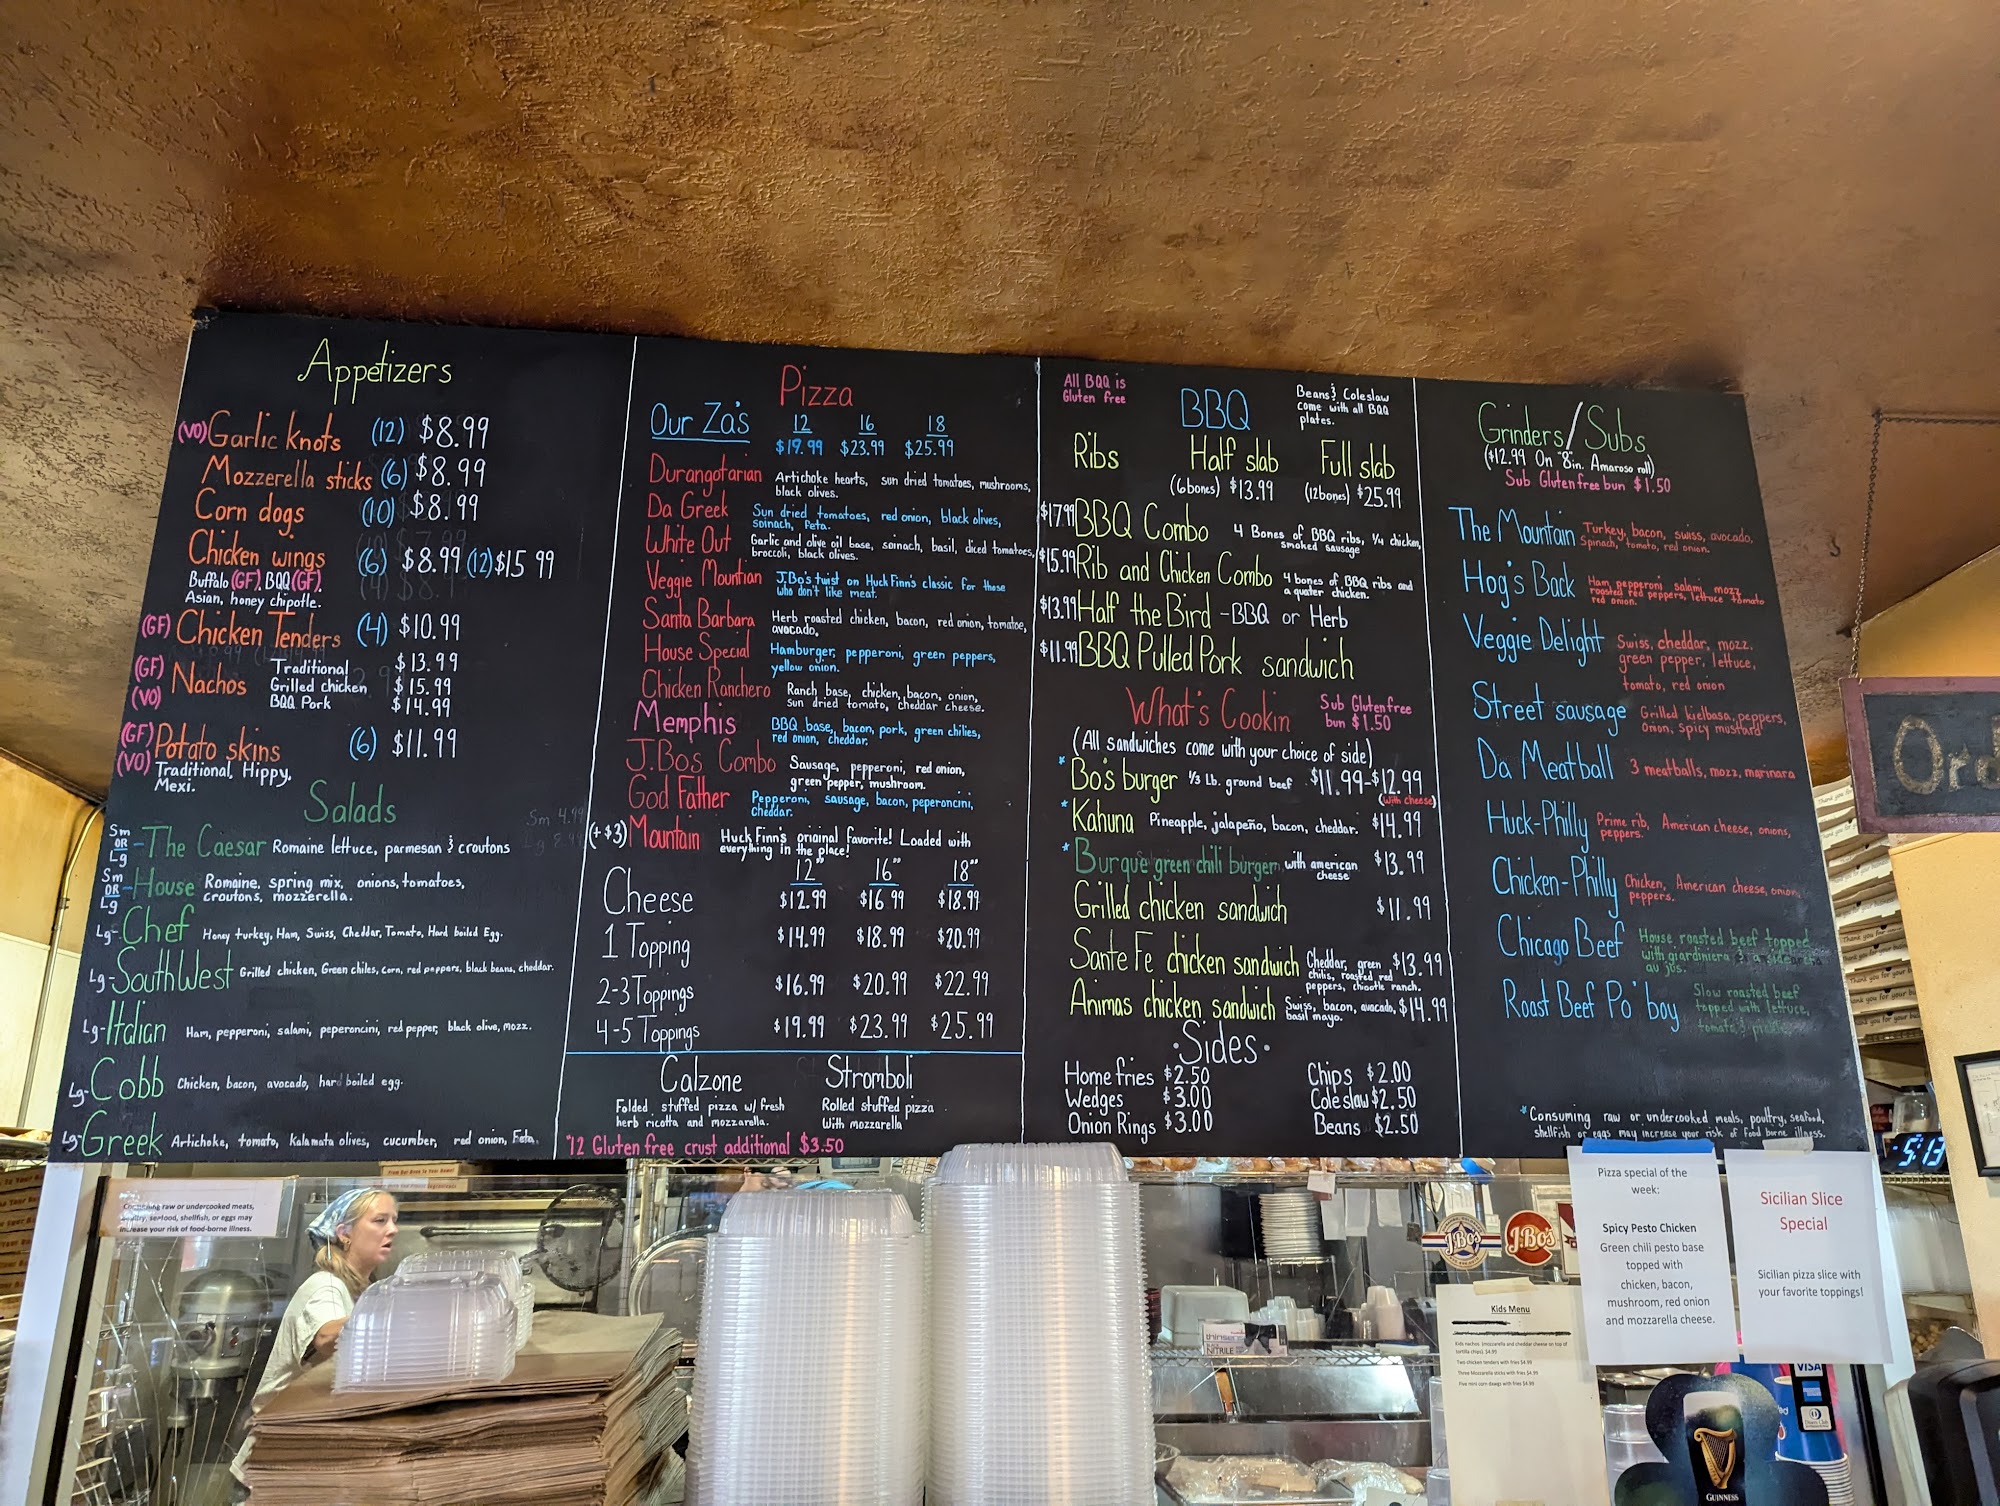 Appetizers
(VO) Garlic knots (12) $8.99
Mozzerella sticks (6) $8.99
Corn dogs (10) $8.99
Chicken wings (6) $8.99 (12) $15 99
Buffalo (GF), BQQ (GF),
Asian, honey chipotle.
(GF) Chicken Tenders (4) $10.99
(GF) (VO) Nachos Traditional $13.99
Grilled chicken $15.99
BQQ Pork $14.99
(GF) (VO) Potato skins (6) $11.99
Traditional, Hippy,
Mexi.
Salads
Sm 4.99
Sm OR Lg - The Caesar Romaine lettuce, parmesan & croutons
Sm OR Lg - House Romaine, spring mix, onions, tomatoes,
croutons, mozzerella.
Lg- Chef Honey turkey, Ham, Swiss, Cheddar, Tomato, Hard boiled Egg.
Lg- SouthWest Grilled chicken, Green chiles, corn, red peppers, black beans, cheddar.
Lg- Italian Ham, pepperoni, salami, peperoncini, red pepper, black olive, mozz.
Lg- Cobb Chicken, bacon, avocado, hard boiled egg.
Lg- Greek Artichoke, tomato, kalamata olives, cucumber, red onion, Feta.
Pizza
Our Za's 12 16 18
$19.99 $23.99 $25.99
Durangotarian Artichoke hearts, sun dried tomatoes, mushrooms,
black olives.
Da Greek Sun dried tomatoes, red onion, black olives,
spinach, feta.
White Out Garlic and olive oil base, spinach, basil, diced tomatoes,
broccoli, black olives.
Veggie Mountian J.Bo's twist on Huck Finn's classic for those
who don't like meat.
Santa Barbara Herb roasted chicken, bacon, red onion, tomatoe,
avocado.
House Special Hamburger, pepperoni, green peppers,
yellow onion.
Chicken Ranchero Ranch base, chicken, bacon, onion,
sun dried tomato, cheddar cheese.
Memphis BBQ base, bacon, pork, green chilies,
red onion, cheddar.
J.Bos Combo Sausage, pepperoni, red onion,
green pepper, mushroom.
God Father Pepperoni, sausage, bacon, peperoncini,
Cheddar.
(+$3) Mountain Huck Finn's original favorite! Loaded with
everything in the place!
12" 16" 18"
Cheese $12.99 $16 99 $18.99
1 Topping $14.99 $18.99 $20.99
2-3 Toppings $16.99 $20.99 $22.99
4-5 Toppings $19.99 $23.99 $25.99
Calzone
Folded stuffed pizza w/ fresh
herb ricotta and mozzarella.
Stromboli
Rolled stuffed pizza
With mozzarella
*12 Gluten free crust additional $3.50
All BQQ is
Gluten free
BBQ
Beans & Coleslaw
come with all BQQ
plates.
Ribs Half slab Full slab
(6bones) $13.99 (12bones) $25.99
$17.99 BBQ Combo 4 Bones of BBQ ribs, 1/4 chicken,
smoked sausage
$15.99 Rib and Chicken Combo 4 bones of BBQ ribs and
a quater chicken.
$13.99 Half the Bird - BBQ or Herb
$11.99 BBQ Pulled Pork sandwich
What's Cookin
Sub Gluten free
bun $1.50
(All sandwiches come with your choice of side)
* Bo's burger 1/3 Lb. ground beef $11.99-$12.99
(with cheese)
* Kahuna Pineapple, jalapeño, bacon, cheddar. $14.99
* Burque green chili burger with american
cheese $13.99
Grilled chicken sandwich $11.99
Sante Fe chicken sandwich Cheddar, green $13.99
chilis, roasted red
peppers, chipotle ranch.
Animas chicken sandwich Swiss, bacon, avocado, $14.99
basil mayo.
·Sides·
Home fries $2.50
Wedges $3.00
Onion Rings $3.00
Chips $2.00
Cole slaw $2.50
Beans $2.50
Grinders/Subs
($12.99 On 8in. Amaroso roll)
Sub Gluten free bun $1.50
The Mountain Turkey, bacon, swiss, avocado,
Spinach, tomato, red onion.
Hog's Back Ham, pepperoni, salami, mozz
roasted red peppers, lettuce tomato
red onion.
Veggie Delight Swiss, cheddar, mozz.
green pepper, lettuce,
tomato, red onion
Street sausage Grilled kielbasa, peppers,
Onion, spicy mustard
Da Meatball 3 meatballs, mozz, marinara
Huck-Philly Prime rib, American cheese, onions,
peppers.
Chicken-Philly Chicken, American cheese, onion,
peppers.
Chicago Beef House roasted beef topped
with giardiniera & a side of
au jus.
Roast Beef Po'boy Slow roasted beef
topped with lettuce,
tomato, &
*Consuming raw or undercooked meals, poultry, seafood,
shellfish or eggs may increase your risk of food borne illness.
Ord
5:13
Consuming raw or undercooked meats,
poultry, seafood, shellfish, or eggs may
increase your risk of food-borne illness.
J.Bo's
J.Bo's
Pizza special of the
week:
Spicy Pesto Chicken
Green chili pesto base
topped with
chicken, bacon,
mushroom, red onion
and mozzarella cheese.
Sicilian Slice
Special
Sicilian pizza slice with
your favorite toppings!
Kids Menu
Kids nachos (mozzarella and cheddar cheese on top of
tortilla chips) $4.99
Two chicken tenders with fries $4.99
Three Mozzarella sticks with fries $4.99
Five mini corn dawgs with fries $4.99
NITRILE
VISA
GUINNESS